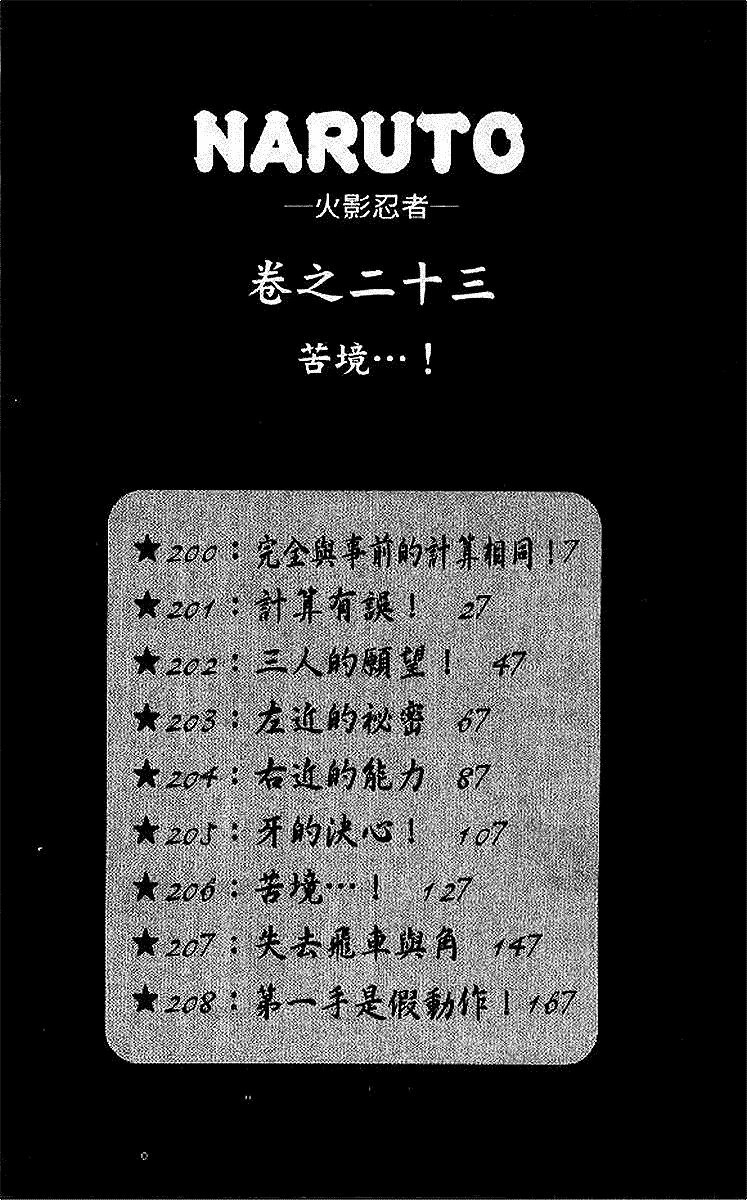 NARUTO
—火影忍者—
卷之二十三
苦境…！
★200：完全與事前的計算相同！7
★201：計算有誤！ 27
★202：三人的願望！ 47
★203：左近的祕密 67
★204：右近的能力 87
★205：牙的決心！ 107
★206：苦境…！ 127
★207：失去飛車與角 147
★208：第一手是假動作！167